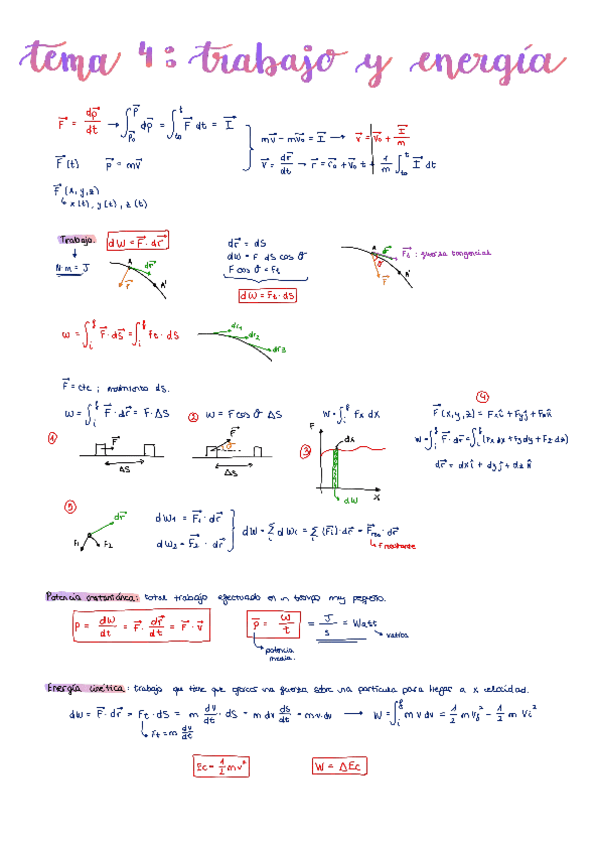 tema 4: trabajo y energía
F⃗ = dp⃗/dt → ∫_{p⃗₀}^{p⃗} dp⃗ = ∫_{t₀}^{t} F⃗ dt = I⃗
mv⃗ − mv⃗₀ = I⃗ → v⃗ = v⃗₀ + I⃗/m
F⃗(t) p⃗ = mv⃗
v⃗ = dr⃗/dt → r⃗ = r⃗₀ + v⃗₀ t + 1/m ∫_{t₀}^{t} I⃗ dt
F⃗(x,y,z)
↳ x(t), y(t), z(t)
Trabajo. dW = F⃗ · dr⃗
N·m = J
A dr⃗ F⃗ A'
dr⃗ = dS
dW = F dS cos θ
F cos θ = Ft
dW = Ft · dS
A Ft : fuerza tangencial
θ F⃗ A'
W = ∫_i^f F⃗ · dS⃗ = ∫_i^f Ft · dS
dr1 dr2 dr3
F⃗ = cte ;
W = ∫_i^f F⃗ · dr⃗ = F · ΔS
② W = F cos θ ΔS
W = ∫_i^f Fx dx
④
F⃗(x,y,z) = Fx î + Fy ĵ + Fz k̂
W = ∫_i^f F⃗ · dr⃗ = ∫_i^f (Fx dx + Fy dy + Fz dz)
dr⃗ = dx î + dy ĵ + dz k̂
① F⃗ ΔS
F⃗ θ ΔS
③ F ds dW x
⑤
dr⃗ F1 F2
dW1 = F⃗1 · dr⃗
dW2 = F⃗2 · dr⃗
dW = Σ_i dWi = Σ_i (F⃗i) · dr⃗ = F⃗res · dr⃗
↳ F resultante
Potencia instantánea: total trabajo efectuado en un tiempo muy pequeño.
P = dW/dt = F⃗ · dr⃗/dt = F⃗ · v⃗
P̄ = W/t = J/s = Watt → vatios
potencia
media.
Energía cinética: trabajo que tiene que ejercer una fuerza sobre una partícula para llegar a x velocidad.
dW = F⃗ · dr⃗ = Ft · dS = m dv/dt · dS = m dv dS/dt = m·v·dv → W = ∫_i^f m v dv = 1/2 m vf² − 1/2 m Vi²
↳ Ft = m dv/dt
Ec = 1/2 mv²
W = ΔEc